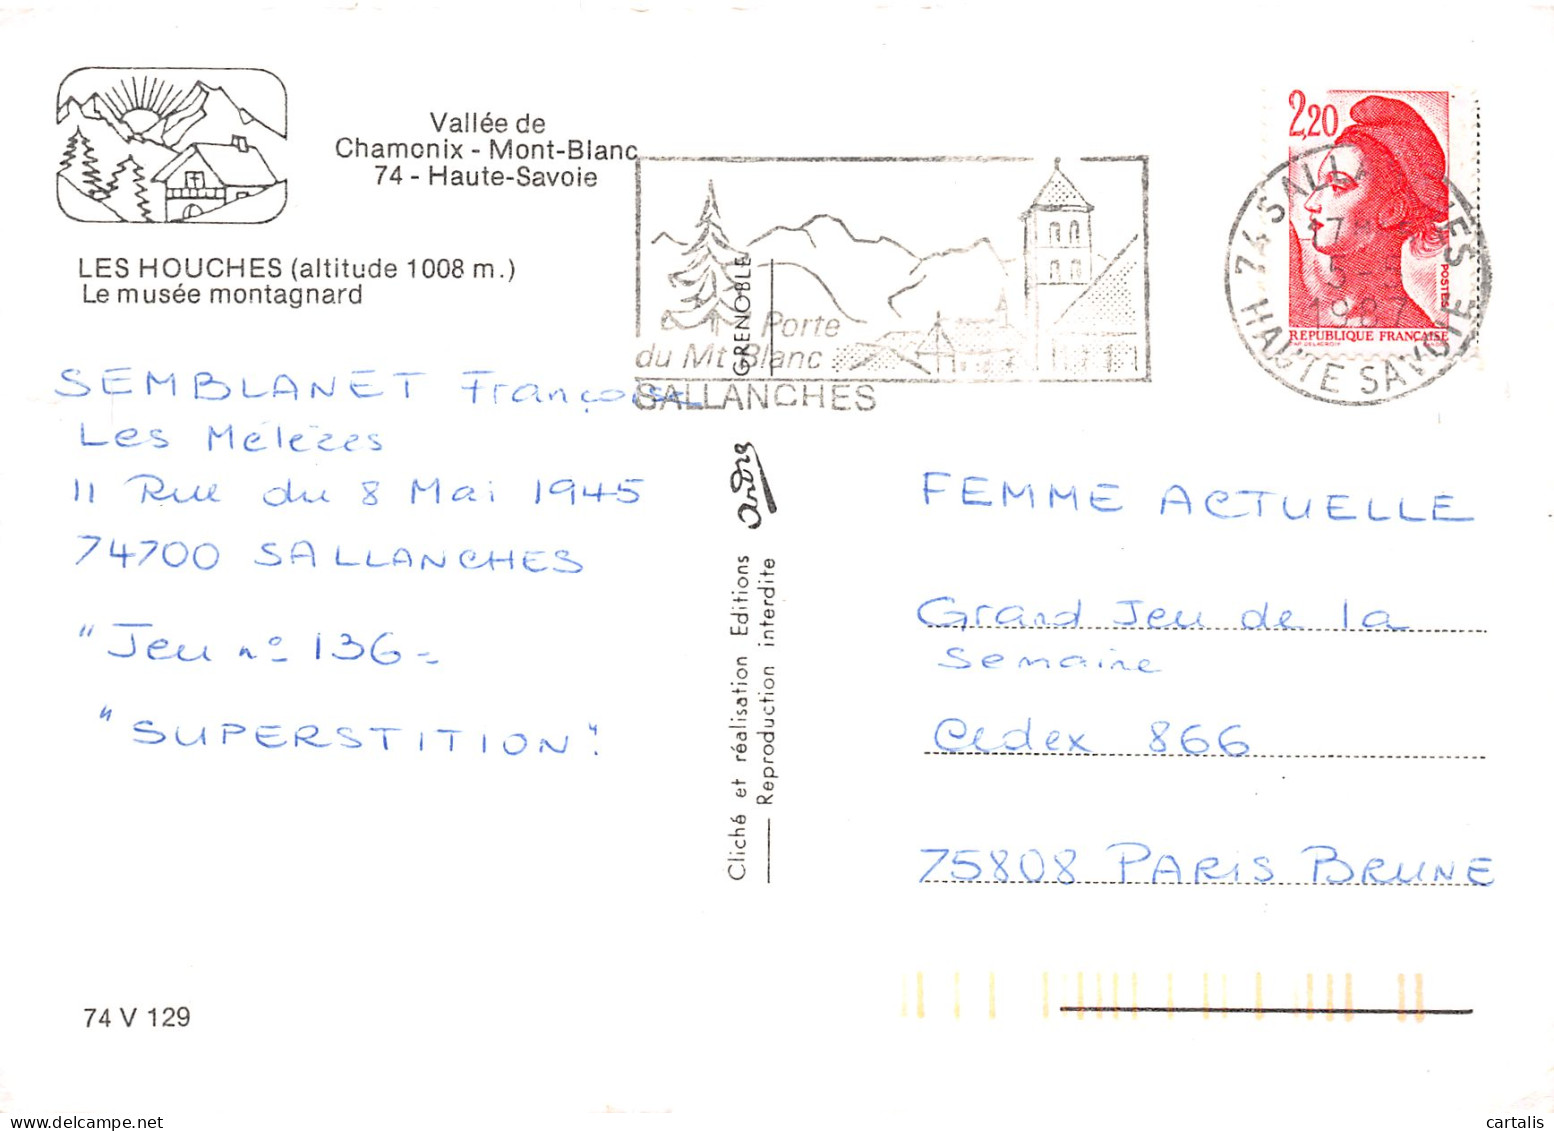 Vallée de
Chamonix - Mont-Blanc
74 - Haute-Savoie
LES HOUCHES (altitude 1008 m.)
Le musée montagnard
SEMBLANET Françoise
Les Mélèzes
11 Rue du 8 Mai 1945
74700 SALLANCHES
"Jeu n° 136-
"SUPERSTITION".
74 V 129
Porte
du Mt Blanc
SALLANCHES
GRENOBLE
andré
Cliché et réalisation Editions
Reproduction interdite
2,20
POSTES
REPUBLIQUE FRANÇAISE
74 SALLANCHES
HAUTE SAVOIE
1987
FEMME ACTUELLE
Grand Jeu de la
Semaine
Cedex 866
75808 PARIS BRUNE
cartalis